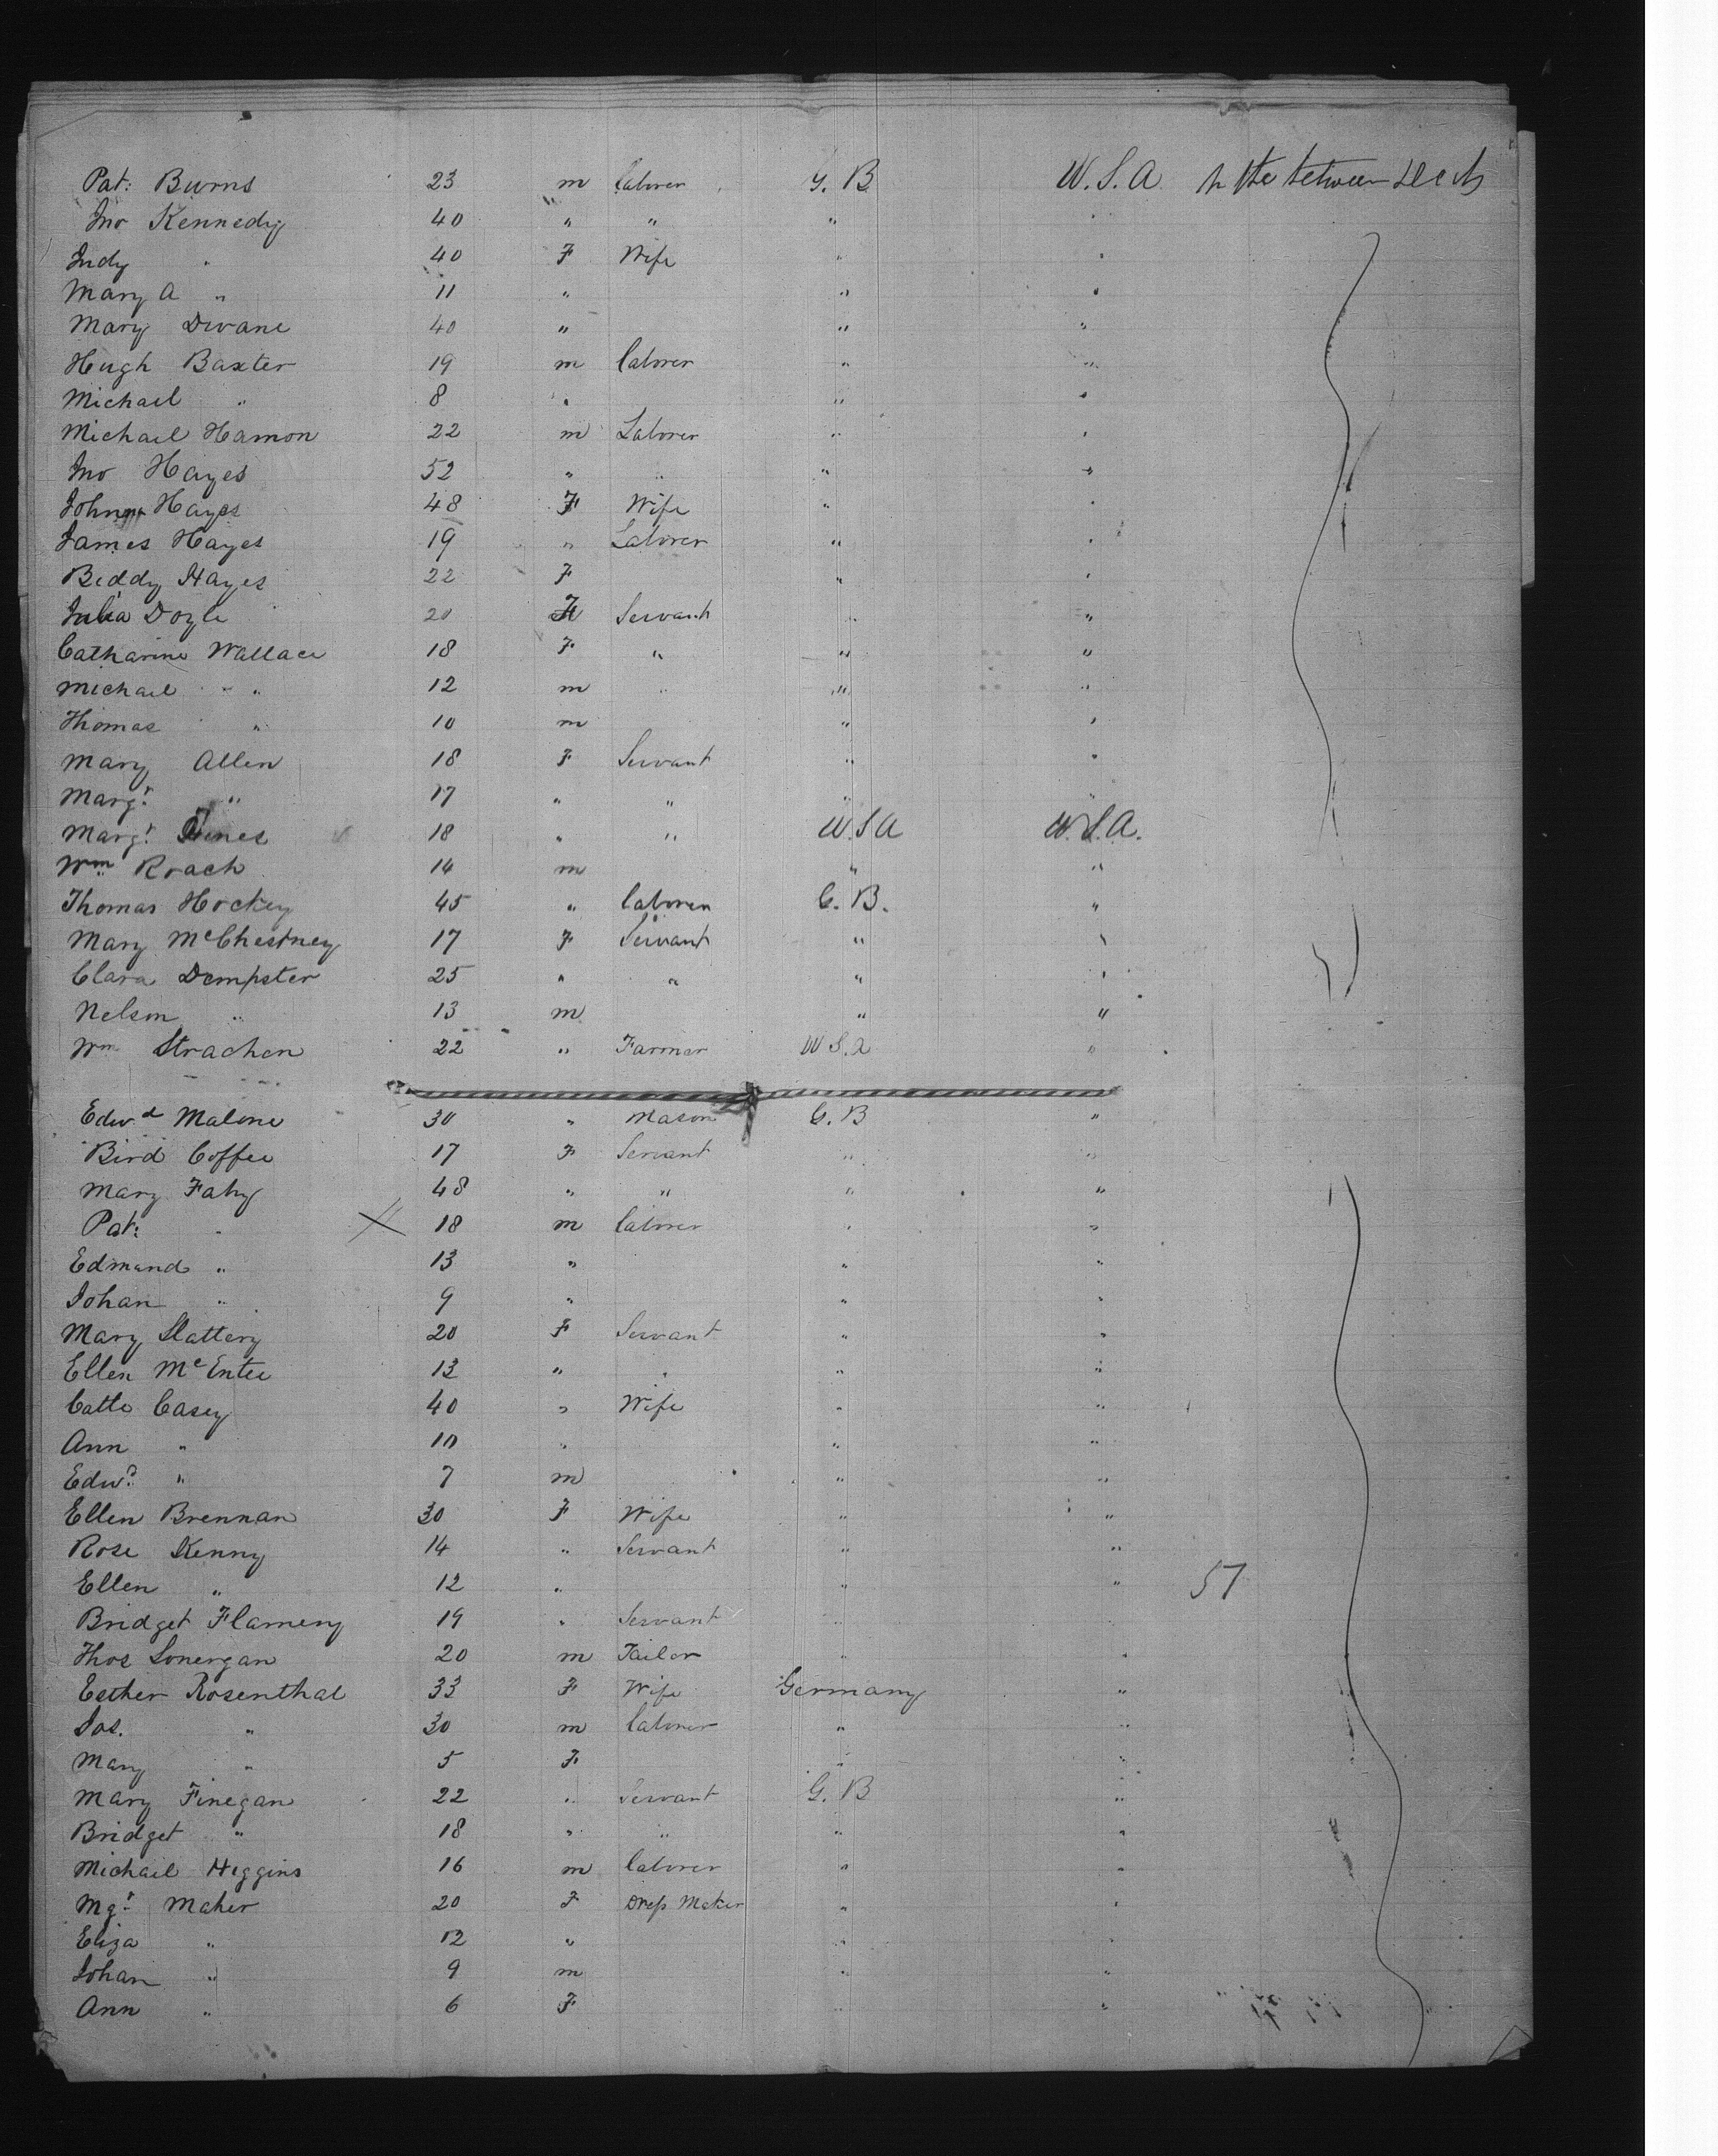 Pat: Burns 23 m laborer G. B U. S. A In the between Decks
Jno Kennedy 40 " " " "
Judy " 40 F Wife " "
Mary A " 11 " " "
Mary Dwane 40 " " "
Hugh Baxter 19 m laborer " "
Michael " 8 " " "
Michael Hamon 22 m Laborer " "
Jno Hayes 52 " " " "
Hayes 48 F Wife " "
James Hayes 19 " Laborer " "
Biddy Hayes 22 F " "
Julia Doyle 20 F Servant " "
Catharine Wallace 18 F " " "
Michael " 12 m " " "
Thomas " 10 m " "
Mary Allen 18 F Servant " "
Margt " 17 " " " "
Margt 18 " " U S A U. S. A.
Wm Roach 14 m " "
Thomas Hockey 45 " laborer G. B. "
Mary McChestney 17 F Servant " "
Clara Dempster 25 " " " "
Nelson " 13 m " "
Wm Strachen 22 " Farmer U S. A "
Edwd Malone 30 " Mason G. B "
Bird Coffee 17 F Servant " "
Mary Fahy 48 " " " "
Pat: " 18 m laborer " "
Edmund " 13 " " "
Johan " 9 " " "
Mary Slattery 20 F Servant " "
Ellen McEntee 13 " " " "
Catte Casey 40 " Wife " "
Ann " 10 " " "
Edwd " 7 m " "
Ellen Brennan 30 F Wife " "
Rose Kenny 14 " Servant " "
Ellen " 12 " " " 57
Bridget Flamery 19 " Servant " "
Thos Lonergan 20 m Tailor " "
Esther Rosenthal 33 F Wife Germany "
Jos. " 30 m laborer " "
Mary " 5 F " "
Mary Finegan 22 " Servant G. B "
Bridget " 18 " " " "
Michael Higgins 16 m laborer " "
Mgt Maher 20 F Dress Maker " "
Eliza " 12 " " "
Johan " 9 m " "
Ann " 6 F " "